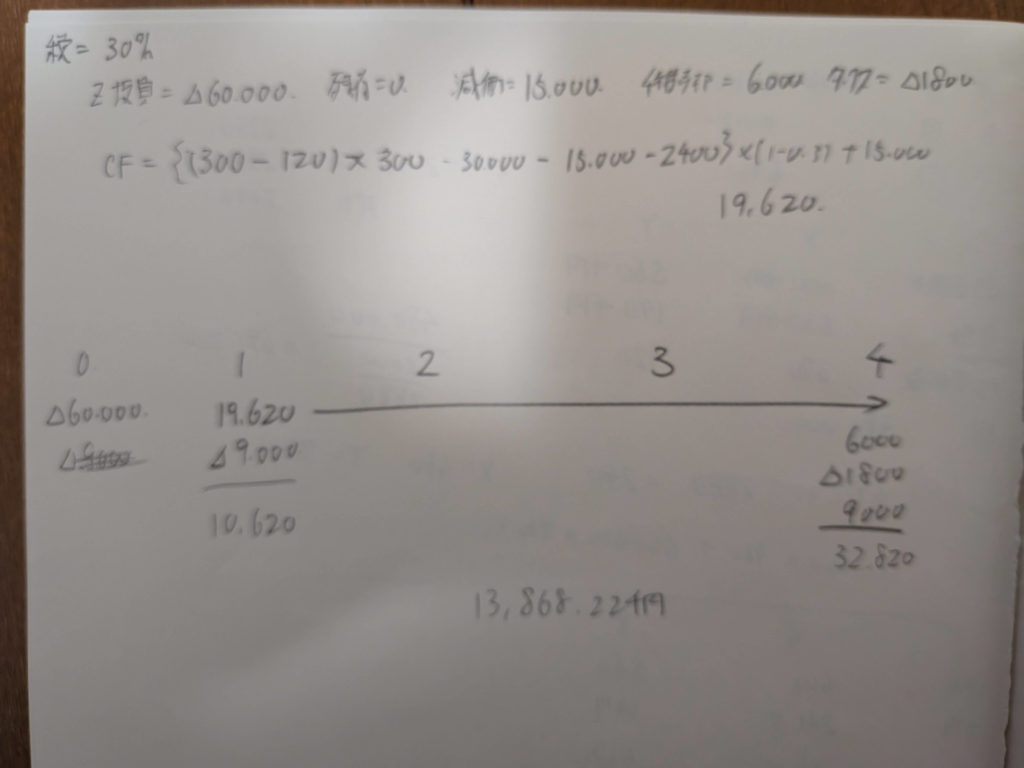 税= 30%
Z 投資 = △60.000. 残価=0 減価=15.000 = 6000 = △1800
CF = {(300 - 120) × 300 - 30000 - 15.000 - 2400} × (1-0.3) + 15.000
19.620.
0 1 2 3 4
△60.000. 19.620 →
6000
△9000 △9.000
△1800
9000
10.620
32.820
13,868.224円